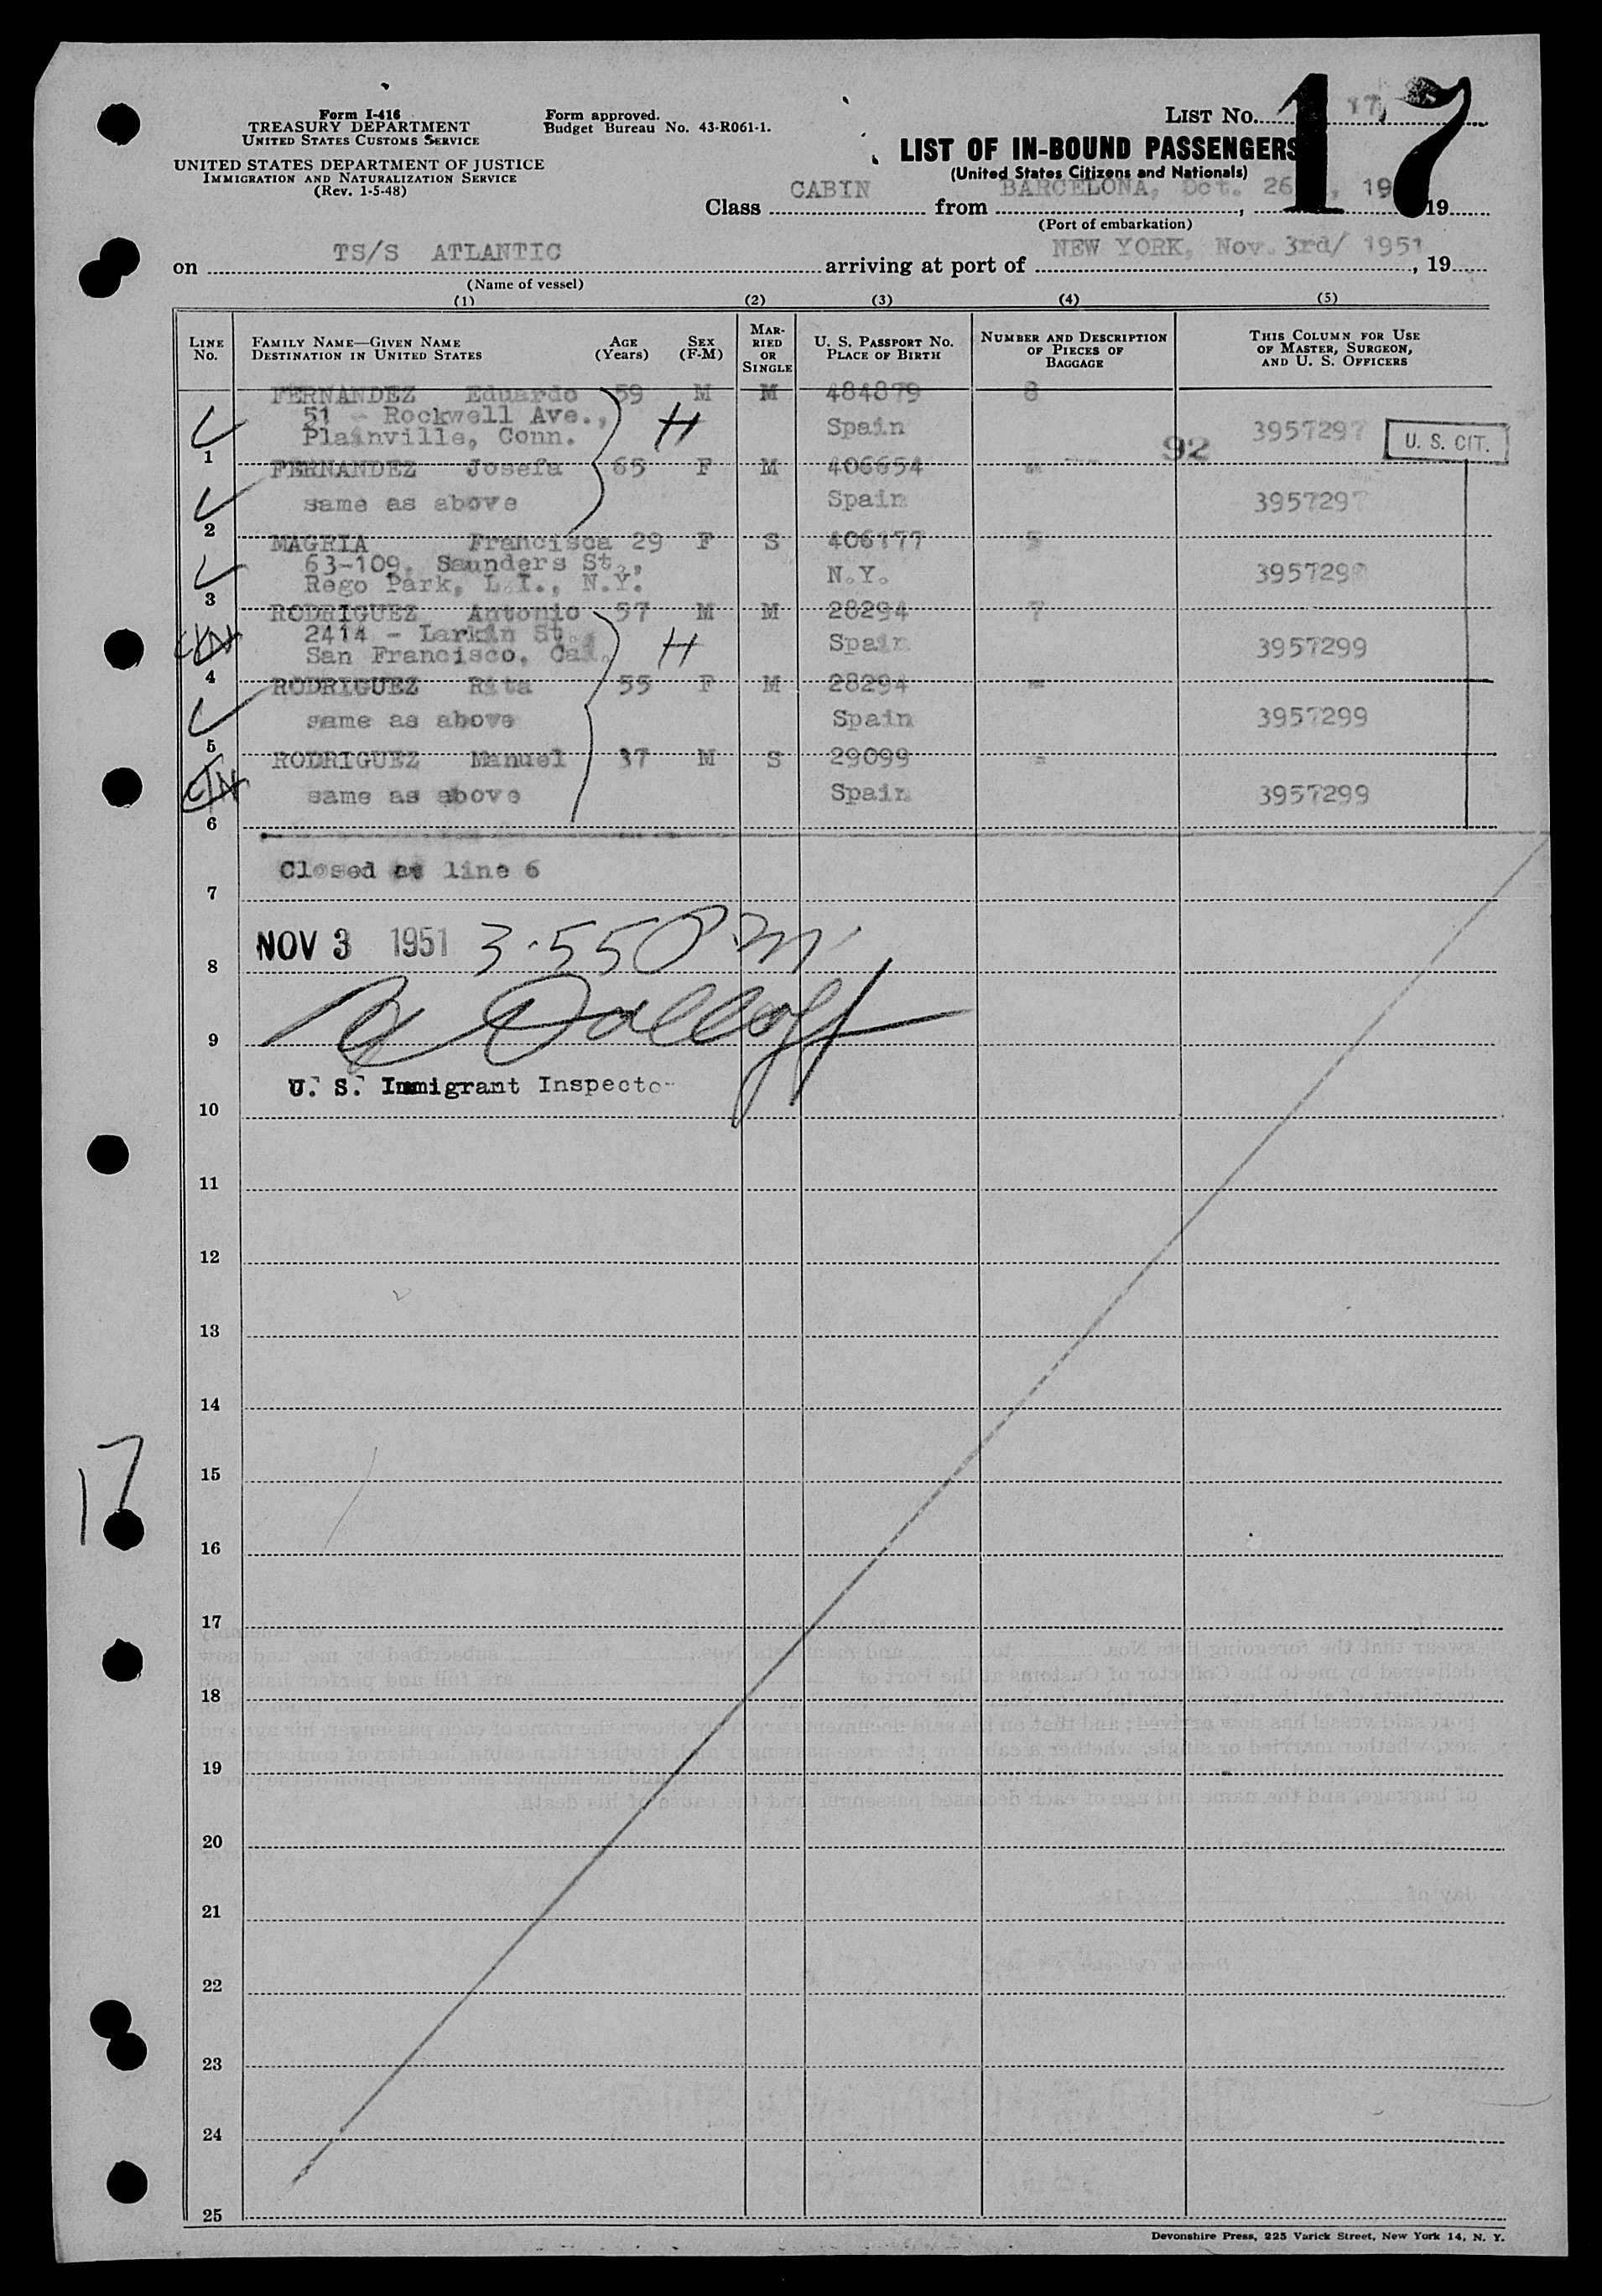 Form I-416
TREASURY DEPARTMENT
UNITED STATES CUSTOMS SERVICE
UNITED STATES DEPARTMENT OF JUSTICE
IMMIGRATION AND NATURALIZATION SERVICE
(Rev. 1-5-48)
Form approved.
Budget Bureau No. 43-R061-1.
LIST No. 17
17
LIST OF IN-BOUND PASSENGERS
(United States Citizens and Nationals)
Class CABIN from BARCELONA, Oct. 26, 19 19
(Port of embarkation)
on TS/S ATLANTIC arriving at port of NEW YORK, Nov. 3rd/ 1951, 19
(Name of vessel)
(1) (2) (3) (4) (5)
LINE No. FAMILY NAME—GIVEN NAME DESTINATION IN UNITED STATES AGE (Years) SEX (F-M) MARRIED OR SINGLE U. S. PASSPORT NO. PLACE OF BIRTH NUMBER AND DESCRIPTION OF PIECES OF BAGGAGE THIS COLUMN FOR USE OF MASTER, SURGEON, AND U. S. OFFICERS
FERNANDEZ Eduardo 59 M M 484879 8
51 - Rockwell Ave., H Spain 3957297 U. S. CIT.
Plainville, Conn. 92
1
FERNANDEZ Josefa 65 F M 406654 "
same as above Spain 3957297
2
MAGRIA Francisca 29 F S 406177 5
63-109, Saunders St., N.Y. 3957298
Rego Park, L.I., N.Y.
3
RODRIGUEZ Antonio 57 M M 28294 7
2414 - Larkin St. H Spain 3957299
San Francisco, Cal.
4
RODRIGUEZ Rita 55 F M 28294 =
same as above Spain 3957299
5
RODRIGUEZ Manuel 37 M S 29099 =
same as above Spain 3957299
6
Closed at line 6
7
NOV 3 1951 3.55 PM
8
9
U. S. Immigrant Inspector
10
11
12
13
14
15
17
16
17
18
19
20
21
22
23
24
25
Devonshire Press, 225 Varick Street, New York 14, N. Y.